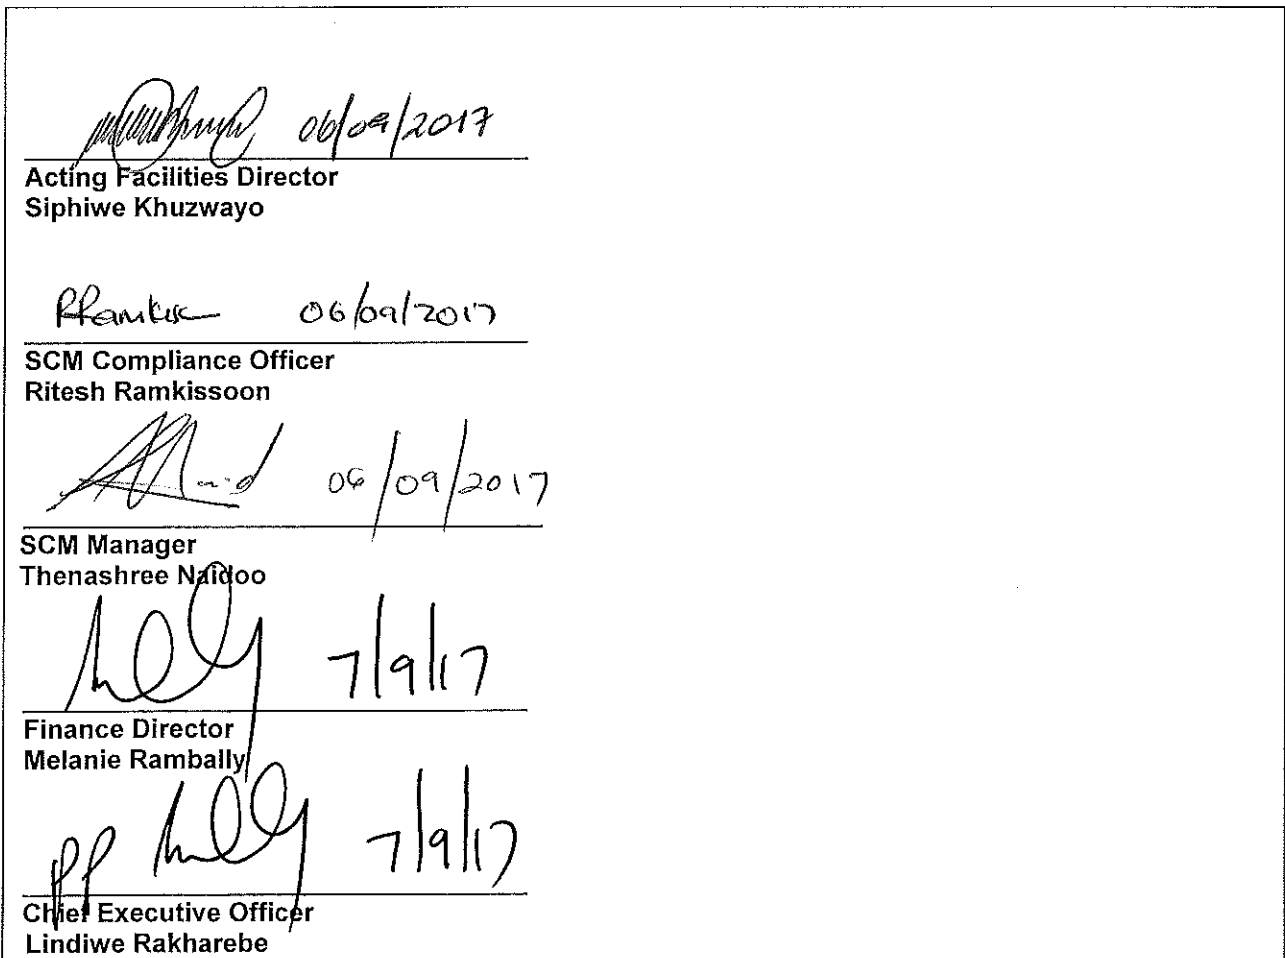 06/09/2017
Acting Facilities Director
Siphiwe Khuzwayo
RRamkiss 06/09/2017
SCM Compliance Officer
Ritesh Ramkissoon
06/09/2017
SCM Manager
Thenashree Naidoo
7/9/17
Finance Director
Melanie Rambally
pp 7/9/17
Chief Executive Officer
Lindiwe Rakharebe